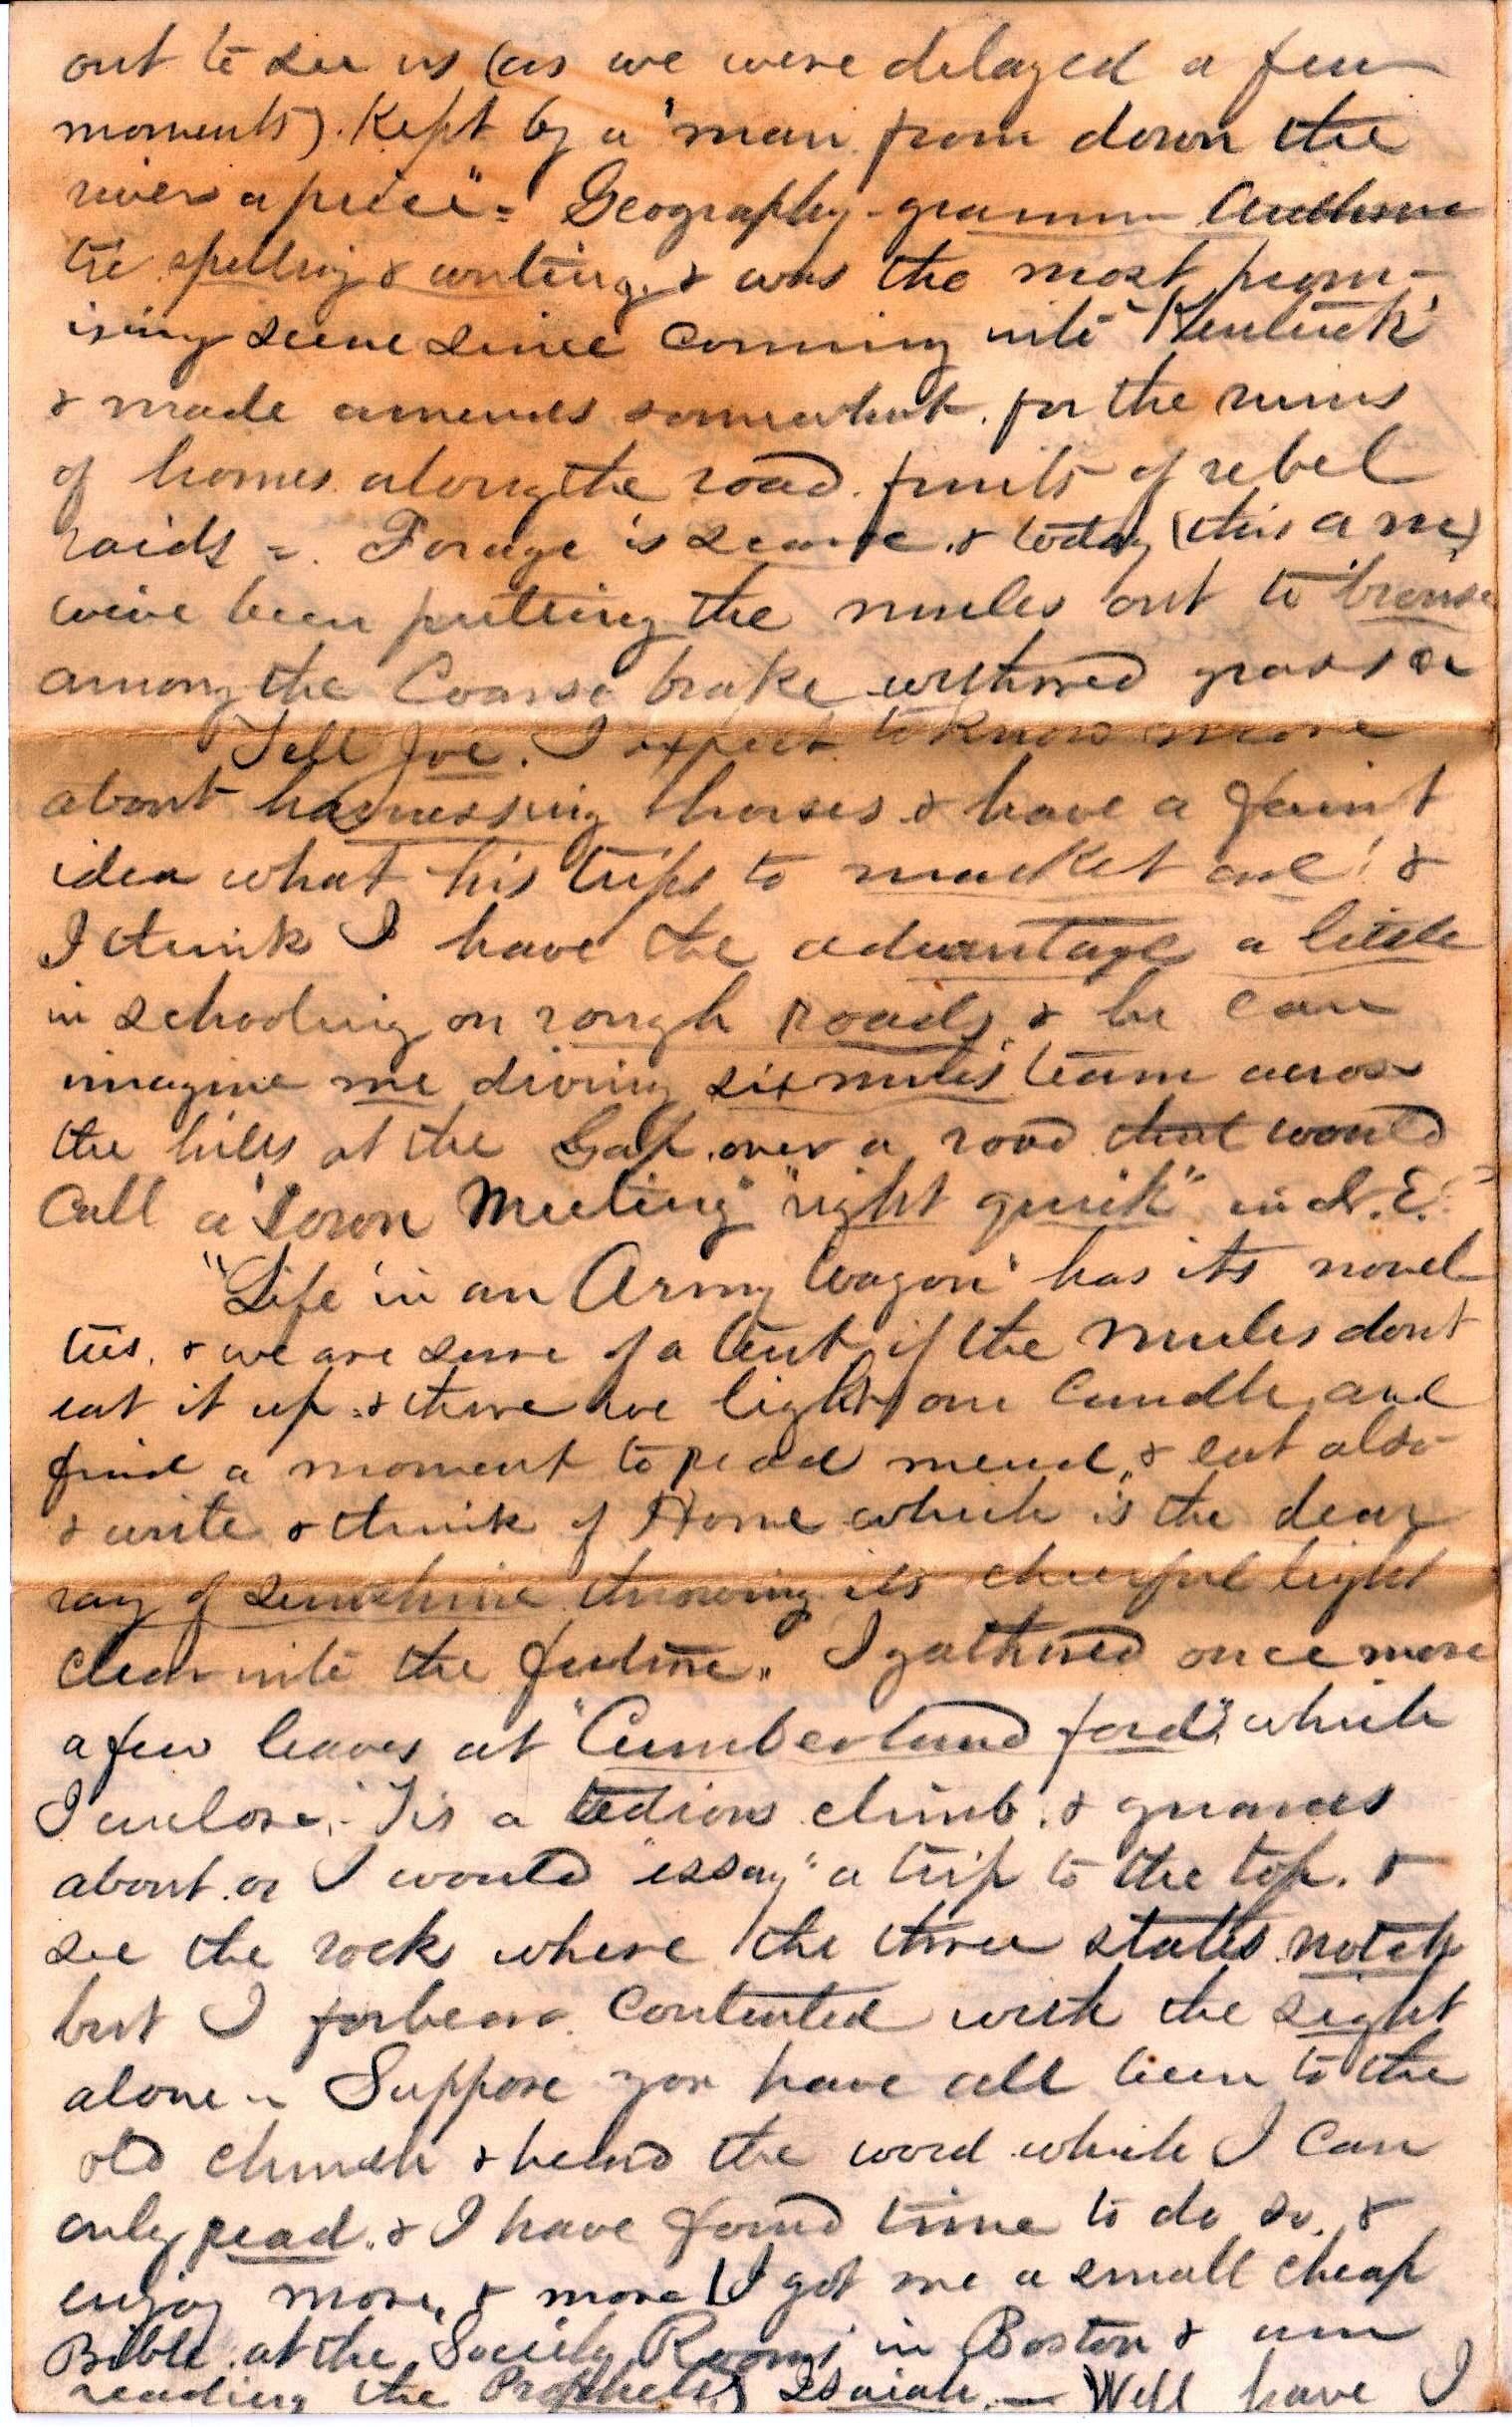 out to see us (as we were delayed a few
moments). Kept by a "man from down the
river a piece" = Geography - gramm Arithme
tic spelling & writing, & was the most prom -
ising scene since coming into "Kentuck"
& made amends somewhat. for the ruins
of homes along the road. fruits of rebel
raids = . Forage is scarce. & today (this a m)
we've been putting the mules out to "browse"
among the Coarse brake withered grass &c
Tell Joe. I expect to know more
about harnessing horses & have a faint
idea what his trips to market are! &
I think I have the advantage a little
in schooling on rough roads, & he can
imagine me driving six mules team across
the hills at the Gap. over a road that would
Call a "Town Meeting" "right quick" in N. E.
"Life in an Army Wagon" has its novel
ties, & we are sure of a tent, if the mules dont
eat it up = & there we light our Candle, and
find a moment to read mend, & eat also
& write & think of Home which is the dear
ray of sunshine throwing its cheerful light
clear into the future,, I gathered once more
a few leaves at "Cumberland ford", which
I enclose, - Tis a tedious climb. & guards
about. or I would "essay" a trip to the top. &
see the rock where the three states notch
but I forbear. Contented with the sight
alone - Suppose you have all been to the
old church & heard the word which I Can
only read. & I have found time to do so. &
enjoy more, & more I got me a small cheap
Bible. at the Society Rooms in Boston & am
reading the Prophets Isaiah. — Well have I